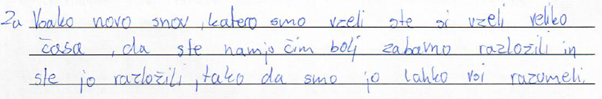 Za vsako novo snov, katero smo vzeli ste si vzeli veliko
časa, da ste namjo čim bolj zabavno razložili in
ste jo razložili, tako da smo jo lahko vsi razumeli.